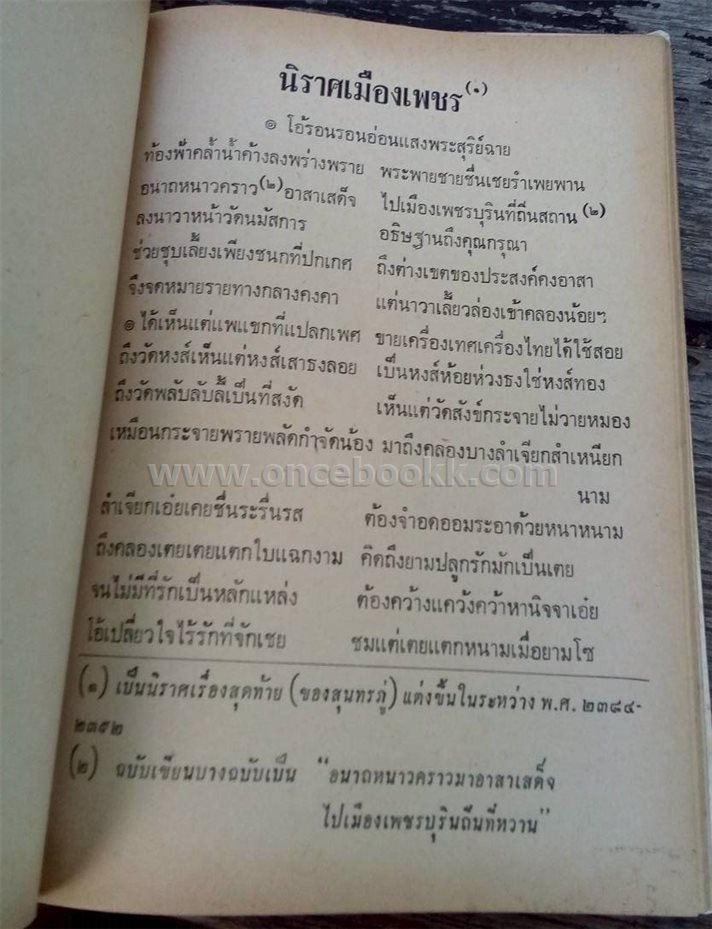 นิราศเมืองเพชร(๑)
๏ โอ้รอนรอนอ่อนแสงพระสุริย์ฉาย
ท้องฟ้าคล้ำน้ำค้างลงพร่างพราย พระพายชายชื่นเชยรำเพยพาน
อนาถหนาวคราว(๒)อาสาเสด็จ ไปเมืองเพชรบุรินที่ถิ่นสถาน(๒)
ลงนาวาหน้าวัดนมัสการ อธิษฐานถึงคุณกรุณา
ช่วยชุบเลี้ยงเพียงชนกที่ปกเกศ ถึงต่างเขตของประสงค์คงอาสา
จึงจดหมายรายทางกลางคงคา แต่นาวาเลี้ยวล่องเข้าคลองน้อยฯ
๏ ได้เห็นแต่แพแขกที่แปลกเพศ ขายเครื่องเทศเครื่องไทยได้ใช้สอย
ถึงวัดหงส์เห็นแต่หงส์เสาธงลอย เป็นหงส์ห้อยห่วงธงใช่หงส์ทอง
ถึงวัดพลับลับลี้เป็นที่สงัด เห็นแต่วัดสังข์กระจายไม่วายหมอง
เหมือนกระจายพรายพลัดกำจัดน้อง มาถึงคลองบางลำเจียกสำเหนียก
www.oncebookk.com
นาม
ลำเจียกเอ๋ยเคยชื่นระรื่นรส ต้องจำอดออมระอาด้วยหนาหนาม
ถึงคลองเตยเตยแตกใบแฉกงาม คิดถึงยามปลูกรักมักเป็นเตย
จนไม่มีที่รักเป็นหลักแหล่ง ต้องคว้างแควังคว้าหานิจจาเอ๋ย
โอ้เปลี่ยวใจไร้รักที่จักเชย ชมแต่เตยแตกหนามเมื่อยามโซ
(๑) เป็นนิราศเรื่องสุดท้าย (ของสุนทรภู่) แต่งขึ้นในระหว่าง พ.ศ. ๒๓๘๔-
๒๓๕๒
(๒) ฉบับเขียนบางฉบับเป็น "อนาถหนาวคราวมาอาสาเสด็จ
ไปเมืองเพชรบุรินถิ่นที่หวาน"